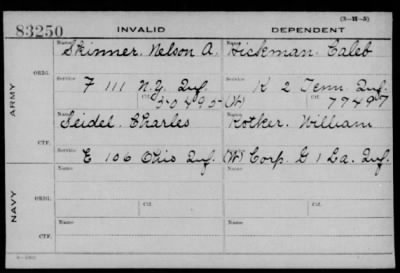 (3-H-5)
83250 INVALID DEPENDENT
Name Skinner, Nelson A. Name Hickman, Caleb
ORIG.
Service F 111 N.Y. Inf. Service K 2 Tenn. Inf.
Ctf. 30490- (W) Ctf. 77497
ARMY
Name Seidel, Charles Name Kotker, William
CTF.
Service E 106 Ohio Inf. (W) Service Corp. G 1 La. Inf.
Name Name
ORIG.
Ctf. Ctf.
NAVY
Name Name
CTF.